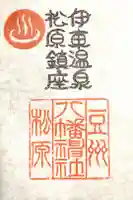 伊東温泉
松原鎮座
豆州
八幡神社
松原